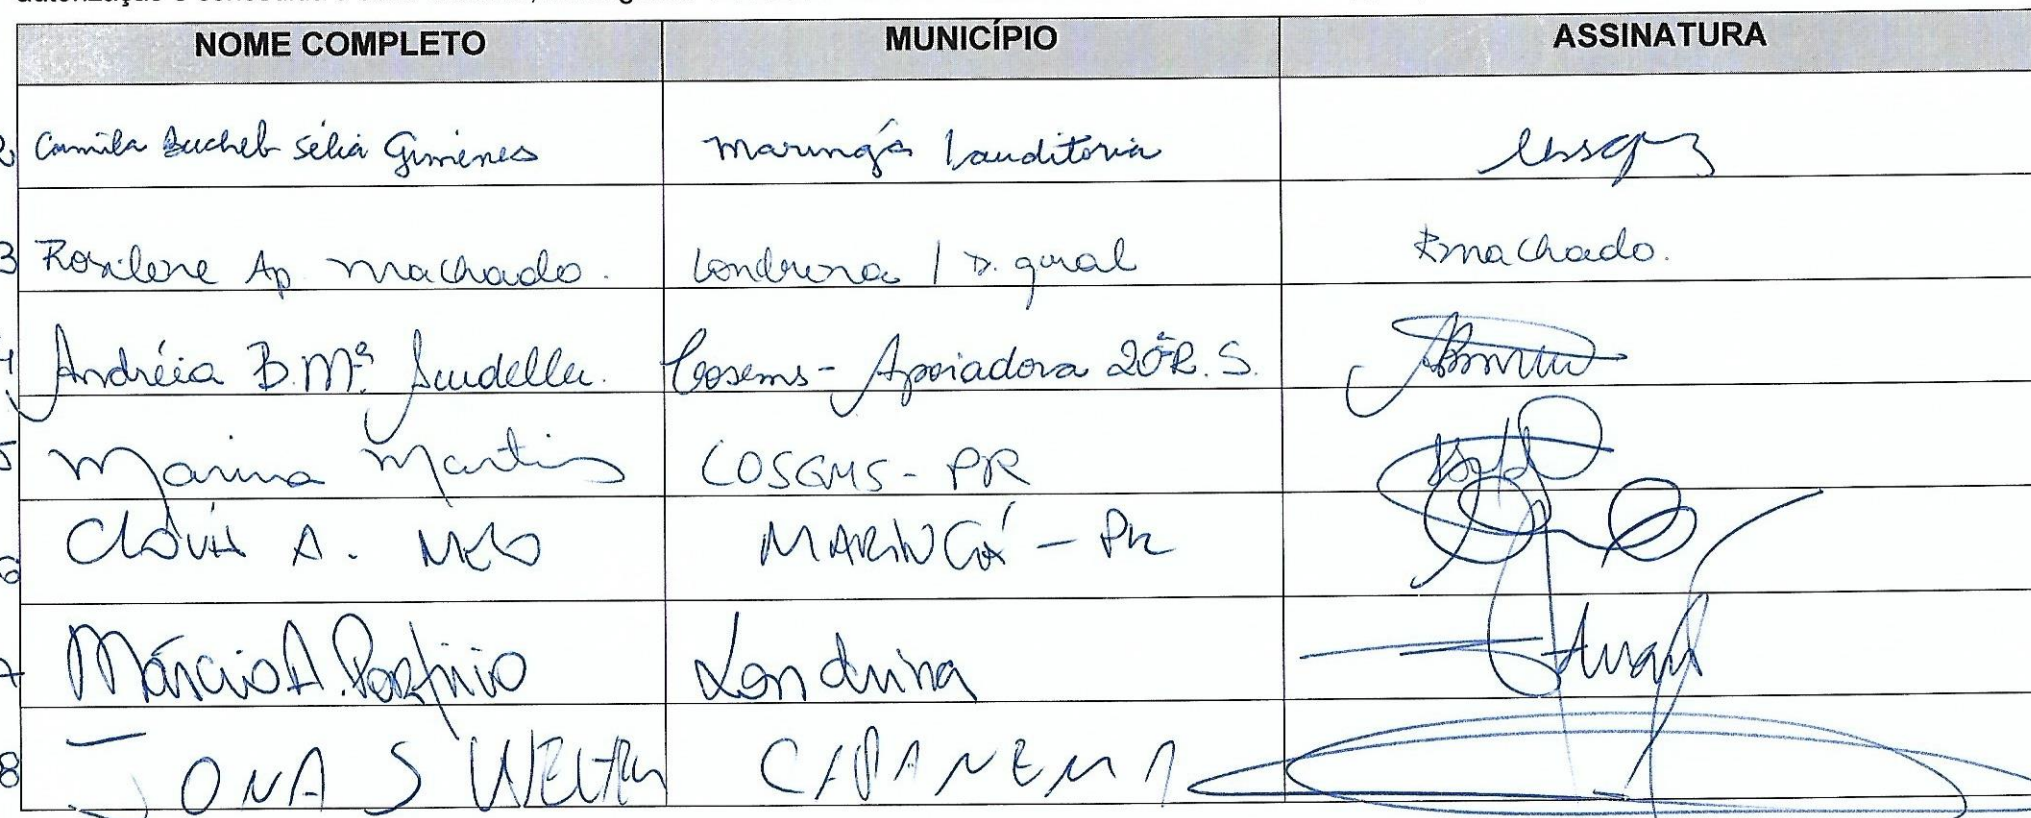 NOME COMPLETO MUNICÍPIO ASSINATURA
2 Camila Sélia Gimenes Maringá / auditoria
3 Rosilene Ap. Machado. Londrina / D. geral RMachado.
4 Andréia B. Mª Scudeller. Cosems - Apoiadora 20ª R. S.
5 Marina Martins COSEMS - PR
6 Clóvis A. Melo MARINGÁ - PR
7 Márcio A. Porfírio Londrina
8 JONAS WELTER CAPANEMA